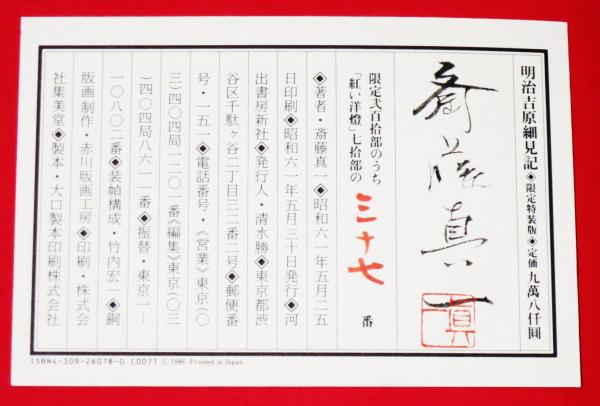 明治吉原細見記◈限定特装版◈定価 九萬八仟圓
斎藤真一
眞一
限定弐百拾部のうち
「紅い洋燈」七拾部の 三十七 番
◈著者・斎藤真一◈昭和六一年五月二五
日印刷◈昭和六一年五月三十日発行◈河
出書房新社◈発行人・清水勝◈東京都渋
谷区千駄ヶ谷二丁目三二番二号◈郵便番
号・一五一◈電話番号・《営業》東京(〇
三)四〇四局一二〇一番《編集》東京(〇三
)四〇四局八六一一番◈振替・東京一―
一〇八〇二番◈装幀構成・竹内宏一◈銅
版画制作・赤川版画工房◈印刷・株式会
社集美堂◈製本・大口製本印刷株式会社
ISBN4-309-26078-0 C0071 © 1986 Printed in Japan